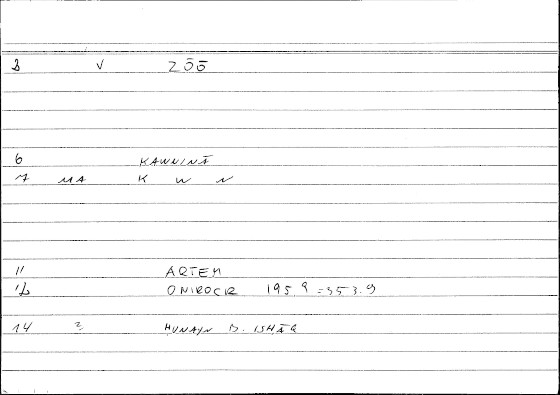 3 V ZŌŌ
6 KAWNINĀ
7 MA K W N
11 ARTEM
12 ONIROCR 195.9 = 353.9
14 2 HUNAYN B. ISHĀQ